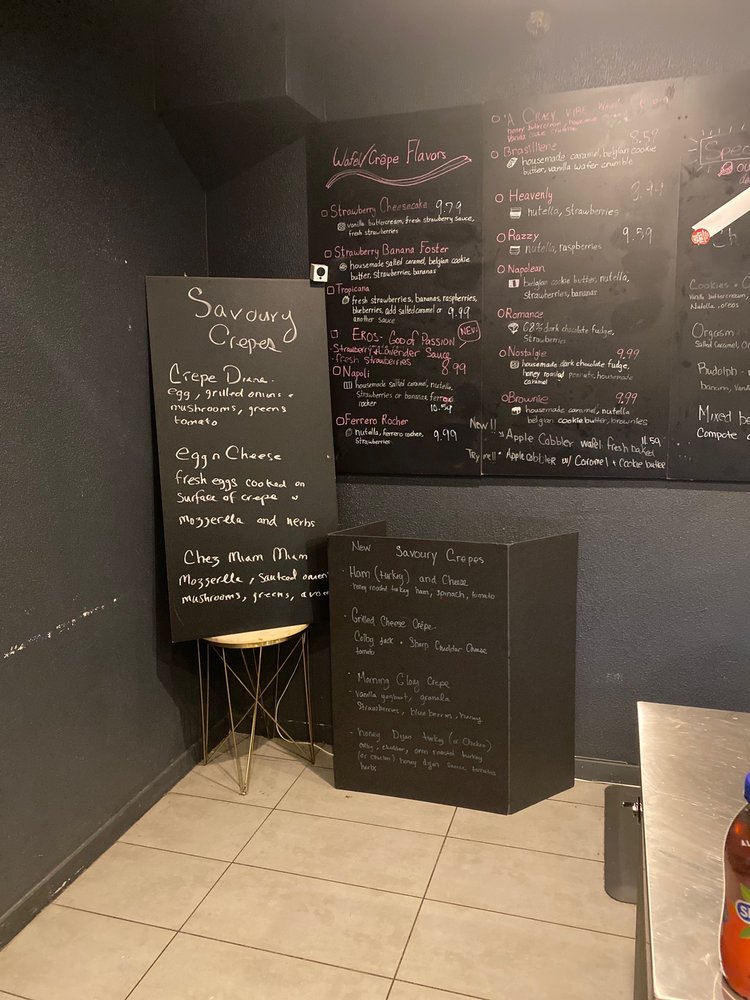 Savoury
Crepes
egg, grilled onions +
mushrooms, greens
tomato
egg n Cheese
fresh eggs cooked on
surface of crepe w
mozzerella and herbs
Chez Miam Miam
mozzerella, sauteed
mushrooms, greens,
Wafel/Crêpe Flavors
Strawberry Cheesecake 9.79
vanilla buttercream, fresh strawberry sauce,
fresh strawberries
Strawberry Banana Foster
housemade salted caramel, belgian cookie
butter, strawberries, bananas
Tropicana
fresh strawberries, bananas, raspberries,
blueberries, add salted caramel or
another sauce 9.99
EROS- GOD of PASSION NEW!
Strawberry + Lavender Sauce
- fresh strawberries 8.99
Napoli
housemade salted caramel, nutella,
strawberries or bananas, ferrero
rocher 10.59
Ferrero Rocher
nutella, ferrero rocher,
strawberries 9.99
A Crazy Vibe
honey buttercream, housemade
Vanilla
Brasilliene 8.59
housemade caramel, belgian cookie
butter, vanilla wafer crumble
Heavenly
nutella, strawberries
Razzy 9.59
nutella, raspberries
Napolean
belgian cookie butter, nutella,
strawberries, bananas
Romance
68% dark chocolate fudge,
Strawberries
Nostalgie 9.99
housemade dark chocolate fudge,
honey roasted peanuts, housemade
caramel
Brownie 9.99
housemade caramel, nutella
belgian cookie butter, brownies
New!! Apple Cobbler wafel: fresh baked 11.59
Try me!! Apple cobbler w/ Caramel + cookie butter
Cookies +
Nutella, oreos
Orgasm
Salted Caramel,
Rudolph
Mixed be
Compote
New Savoury Crepes
Ham (turkey) and Cheese
honey roasted turkey ham, spinach, tomato
Grilled Cheese Crêpe
Colby Jack + Sharp Cheddar Cheese
tomato
Morning Glory Crepe
vanilla yoghurt, granola
Strawberries, blueberries, honey
honey Dijon turkey (or Chicken)
cheddar, oven roasted turkey
(or chicken) honey dijon sauce tomatoes
herbs